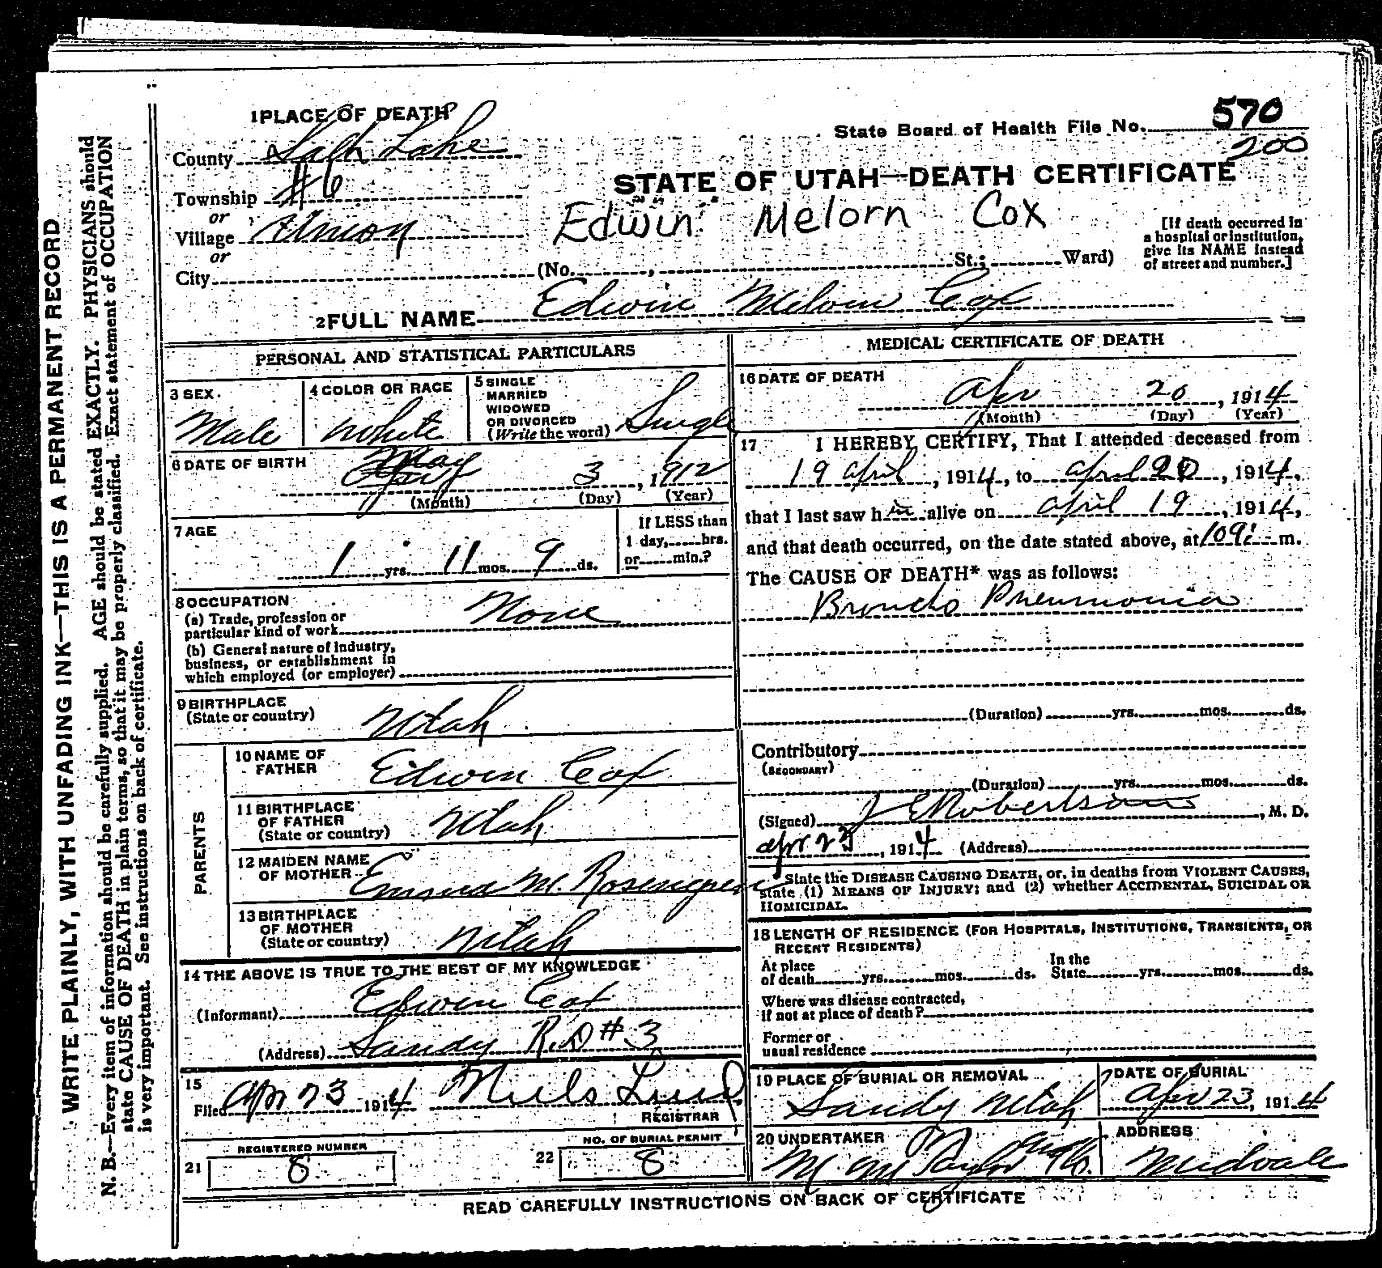 1 PLACE OF DEATH
State Board of Health File No. 570
200
County Salt Lake
Township #6
STATE OF UTAH—DEATH CERTIFICATE
or
Village Union
Edwin Melorn Cox
or
City (No. , St.; Ward)
[If death occurred in
a hospital or institution,
give its NAME instead
of street and number.]
2 FULL NAME Edwin Melorn Cox
PERSONAL AND STATISTICAL PARTICULARS
3 SEX
Male
4 COLOR OR RACE
White
5 SINGLE
MARRIED
WIDOWED
OR DIVORCED
(Write the word) Single
6 DATE OF BIRTH
May 3, 1912
(Month) (Day) (Year)
7 AGE
1 yrs. 11 mos. 9 ds.
If LESS than
1 day, hrs.
or min.?
8 OCCUPATION
(a) Trade, profession or
particular kind of work None
(b) General nature of Industry,
business, or establishment in
which employed (or employer)
9 BIRTHPLACE
(State or country) Utah
PARENTS
10 NAME OF
FATHER Edwin Cox
11 BIRTHPLACE
OF FATHER
(State or country) Utah
12 MAIDEN NAME
OF MOTHER Emma M. Rosengreen
13 BIRTHPLACE
OF MOTHER
(State or country) Utah
14 THE ABOVE IS TRUE TO THE BEST OF MY KNOWLEDGE
(Informant) Edwin Cox
(Address) Sandy R.D #3
15
Filed Apr 23 1914 Niels Lind
REGISTRAR
21 REGISTERED NUMBER
8
22 NO. OF BURIAL PERMIT
8
MEDICAL CERTIFICATE OF DEATH
16 DATE OF DEATH
Apr 20, 1914
(Month) (Day) (Year)
17 I HEREBY CERTIFY, That I attended deceased from
19 April, 1914, to April 20, 1914,
that I last saw him alive on April 19, 1914,
and that death occurred, on the date stated above, at m.
The CAUSE OF DEATH* was as follows:
Broncho Pneumonia
(Duration) yrs. mos. ds.
Contributory
(SECONDARY)
(Duration) yrs. mos. ds.
(Signed) J E Robertson, M. D.
Apr 23, 1914 (Address)
State the DISEASE CAUSING DEATH, or, in deaths from VIOLENT CAUSES,
state (1) MEANS OF INJURY; and (2) whether ACCIDENTAL, SUICIDAL OR
HOMICIDAL.
18 LENGTH OF RESIDENCE (FOR HOSPITALS, INSTITUTIONS, TRANSIENTS, OR
RECENT RESIDENTS)
At place
of death yrs. mos. ds.
In the
State yrs. mos. ds.
Where was disease contracted,
if not at place of death?
Former or
usual residence
19 PLACE OF BURIAL OR REMOVAL
Sandy Utah
DATE OF BURIAL
Apr 23, 1914
20 UNDERTAKER
ADDRESS
Midvale
READ CAREFULLY INSTRUCTIONS ON BACK OF CERTIFICATE
WRITE PLAINLY, WITH UNFADING INK—THIS IS A PERMANENT RECORD
N. B.—Every item of information should be carefully supplied. AGE should be stated EXACTLY. PHYSICIANS should
state CAUSE OF DEATH in plain terms, so that it may be properly classified. Exact statement of OCCUPATION
is very important. See instructions on back of certificate.